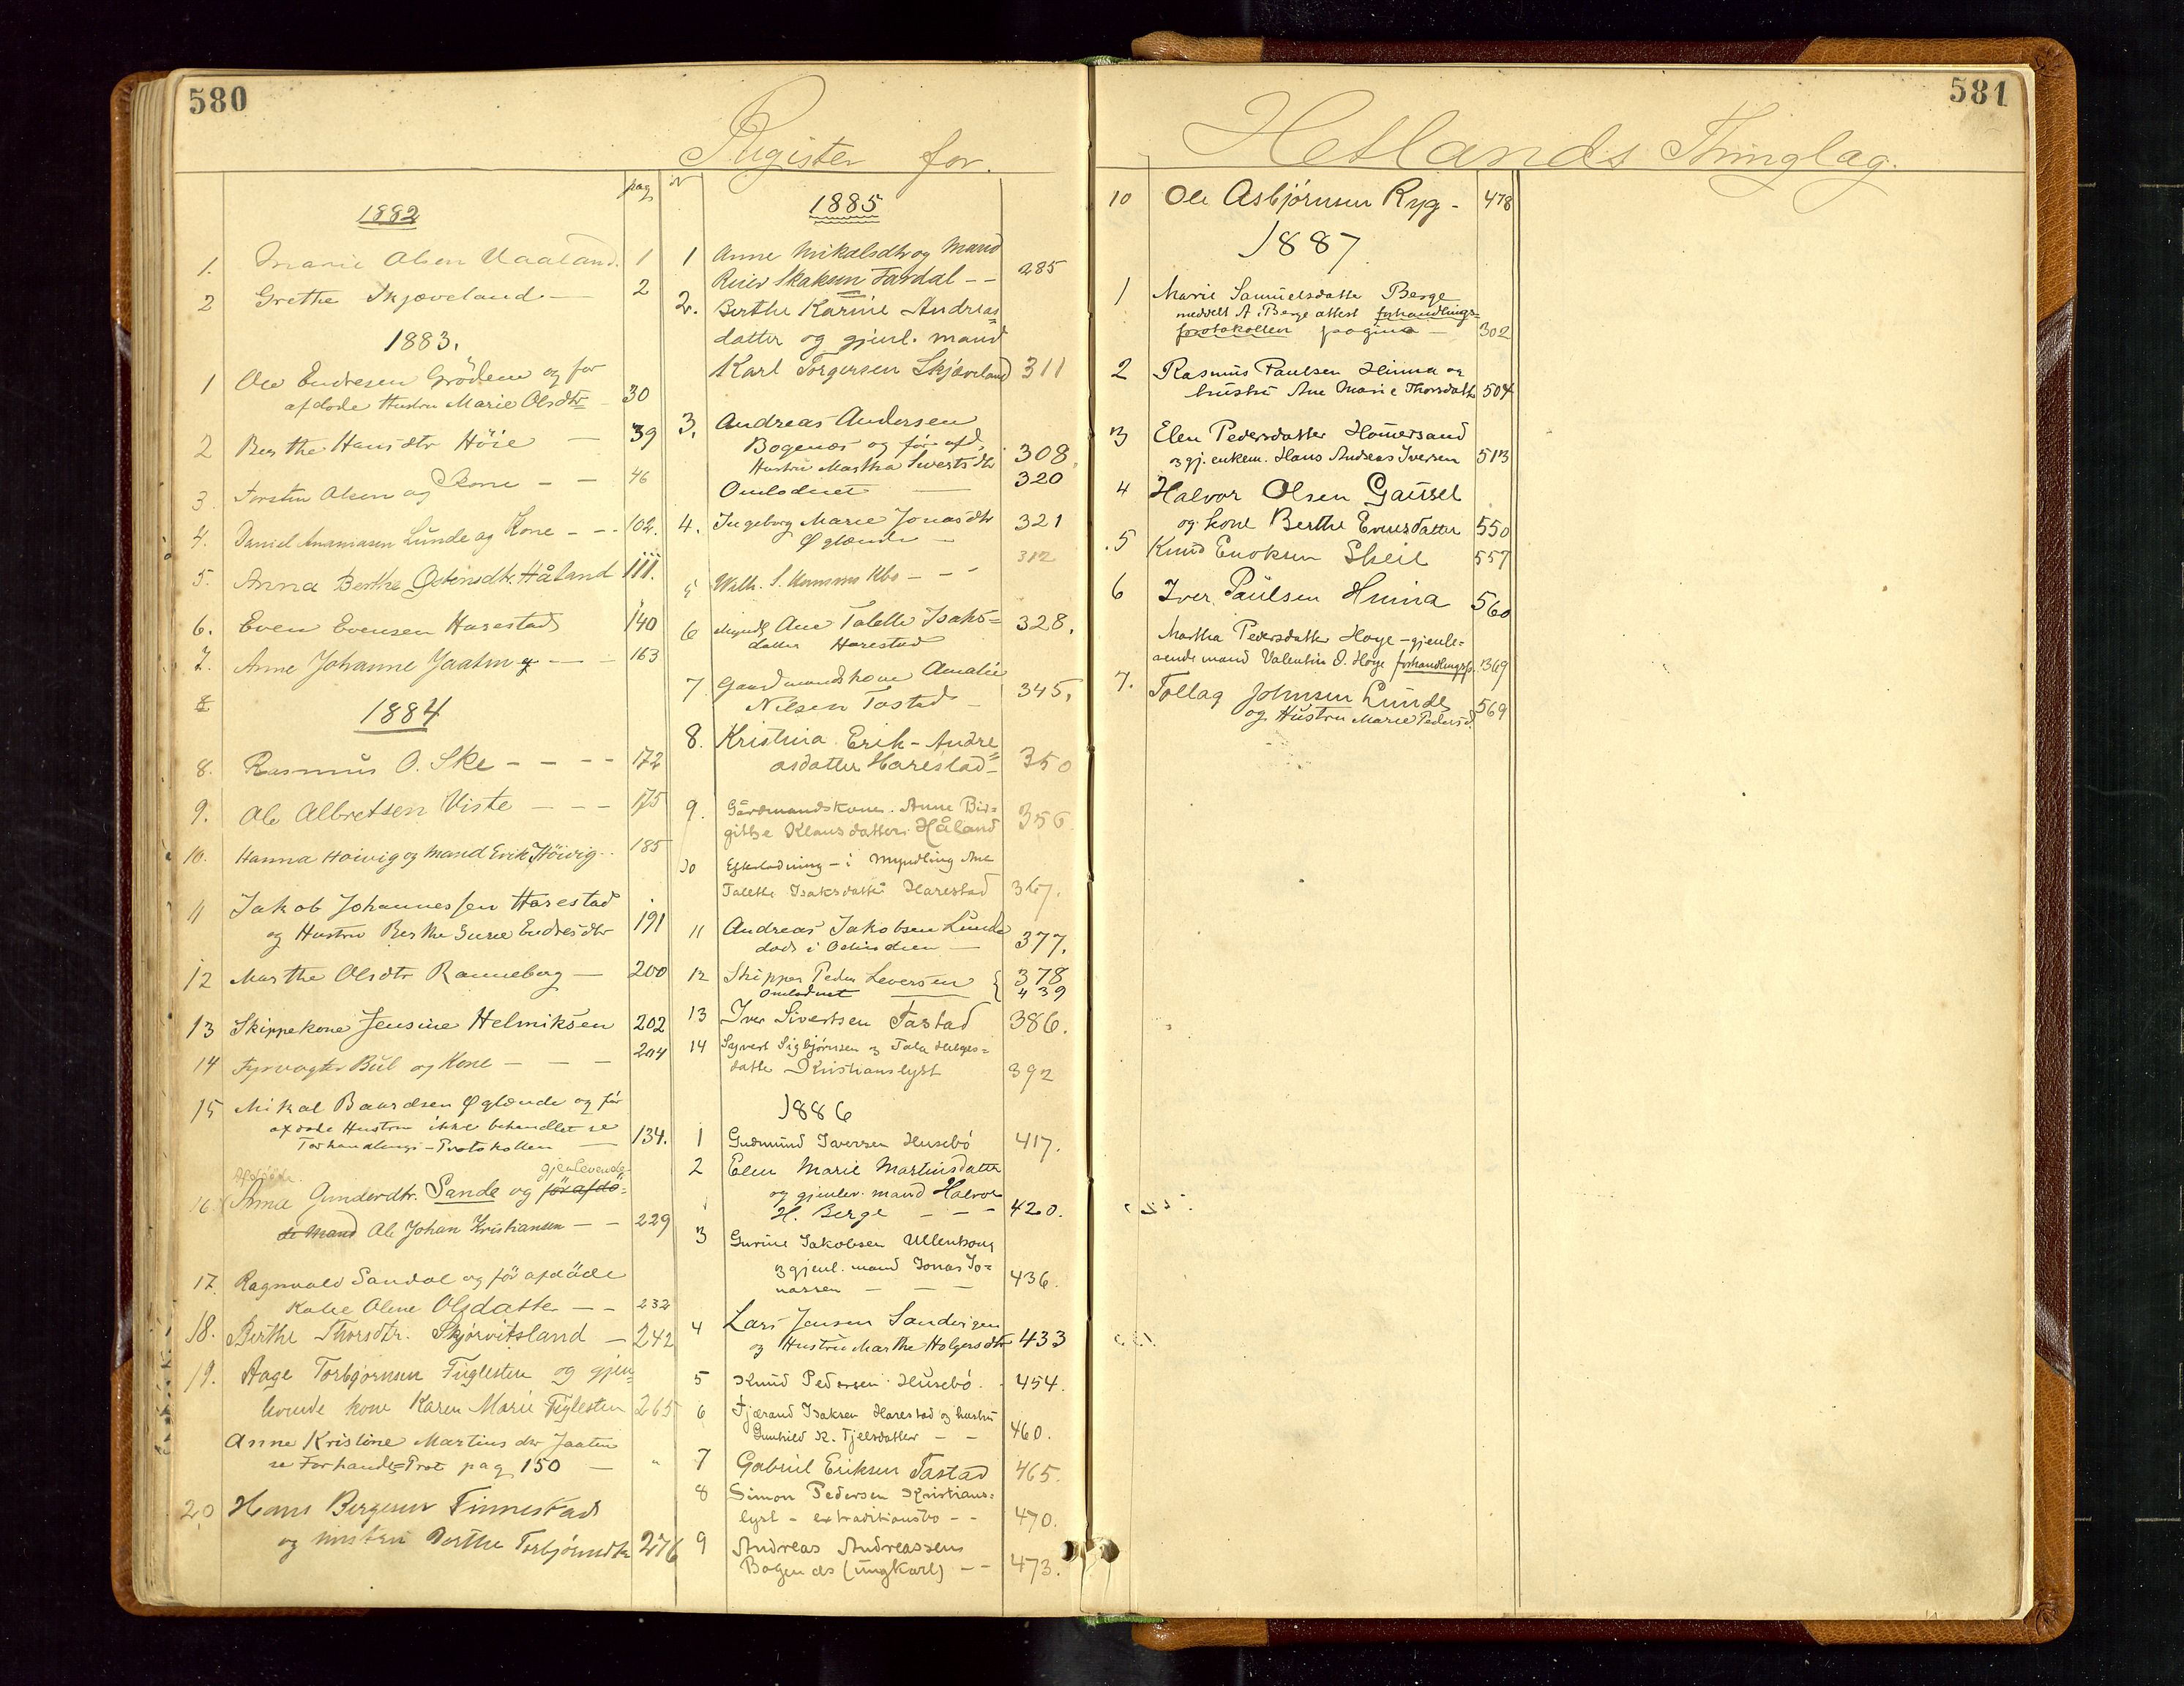 580
Register for
pag
1882
1. Marie Olsen Vaaland. 1
2 Grethe Skjæveland — 2
1883.
1 Ole Endresen Grödem og for
afdøde Hustru Marie Olsdtr 30
2 Berthe Hansdtr Höie — 39
3. Torsten Olsen og Kone – – 46
4. Daniel Ananiasen Lunde og Kone – – 102.
5. Anna Berthe Håland 111.
6. Even Evensen Harestad 140
7. Anne Johanne Jaatun — 163
8
1884
8. Rasmus O. Ske – – – – 172
9. Ole Albretsen Viste – – – 175
10. Hanna Hoivig og Mand Erik Höivig 185
11 Jakob Johannessen Harestad
og Hustru Berthe Gurie Endresdtr 191
12 Marthe Olsdtr Ranneberg — 200
13 Skippekone Jensine Helmiksen 202
14 Fyrvogter Bul og Kone – – – 204
15 Mikal Baardsen Øglænde og før
afdøde Hustru ikke behandlet se
Forhandlings-Protokollen — 134.
Afdøde gjenlevende
16. Anna Gundersdtr. Sande og før afdö-
de Mand Ole Johan Kristiansen – – 229
17. Ragnvald Sandal og för afdöde
Kone Olene Olsdatter – – 232
18. Berthe Thorsdtr. Skjørvitsland – 242
19. Aage Torbjørnsen Fuglesten og gjen-
levende kone Karen Marie Fuglesten 265
Anne Kristine Martins dtr Jaatun
se Forhandl=Prot pag 150 — "
20 Hans Bergesen Finnestad
og hustru Berthe Torbjörnsdtr 276
1885
1 Anne Mikalsdtr og Mand
Reier Skaksen Fardal – – 285
2. Berthe Karine Andreas=
datter og gjenl. mand
Karl Torgersen Skjæveland 311
3. Andreas Andersen
Bogenæs og før afd.
Hustru Martha Sivertsdtr 308.
Omlodnet — 320
4. Ingeborg Marie Jonasdtr 321
Øglænde —
5 Wilh. S. – – – 312
6 Myndl. Ane Talette Isaks= 328.
datter Harestad
7 Gaardmandskone Amalie
Nilsen Tastad – 345.
8. Kristina Erik-Andre=
asdatter Harestad – 350
9. Gårdmandskone. Anne Bir=
githe Klausdatter Håland 356
10 Efterlodning – i Myndling Ane
Talette Isaksdatter Harestad 367.
11 Andreas Jakobsen Lunde
død i Ostindien — 377.
12 Skipper Peder Seversen { 378
Omlodnet 439
13 Iver Sivertsen Tastad 386.
14 Syvert Sigbjørnsen og Tala Helges=
datter Kristianslyst 392
1886
1 Gudmund Iversen Husebö 417.
2 Elen Marie Martinsdatter
og gjenlev. mand Halvor
H. Berge – – – 420.
3 Gurine Jakobsen Ullenhoug
og gjenl. mand Jonas Jo=
nassen – – – 436.
4 Lars Jensen Sandvigen
og Hustru Marthe Holgersdtr 433
5 Knud Pedersen Husebö. 454.
6 Tjærand Isaksen Harestad og hustru
Gunhild K. Tjelsdatter – – 460.
7 Gabriel Eriksen Tastad 465.
8 Simon Pedersen Kristians=
lyst – extraditionsbo – – 470.
9 Andreas Andreassen
Bogenæs (ungkarl) – – 473.
581
Hetlands Thinglag.
10 Ole Asbjørnsen Ryg – 478
1887
1 Marie Samuelsdatter Berge
meddelt A. Berge attest forhandlings=
protokollen pagina — 302
2 Rasmus Paulsen Hinna og
hustru Ane Marie Thorsdatter 504
3 Elen Pedersdatter Homersand
og gj. enkem. Hans Andreas Iversen 513
4 Halvor Olsen Gausel
og kone Berthe Eversdatter 550
5 Knud Enoksen Skeil 557
6 Iver Paulsen Hinna 560
Martha Pedersdatter Hoye – gjenle=
vende mand Valentin O. Høye forhandlingsp. 369
7. Tollag Johnsen Lunde 569
og Hustru Marie Pedersd.